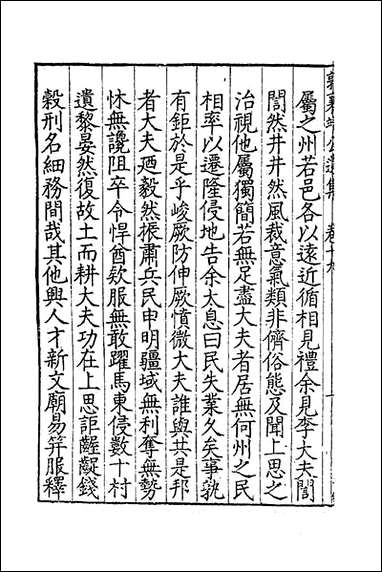 屬之州若邑各以遠近循相見禮余見李大夫誾
誾然井井然風裁意氣類非儕俗態及聞上思之
治視他屬獨簡若無足盡大夫者居無何州之民
相率以遷隆侵地告余太息曰民失業久矣事孰
有鉅於是乎峻厥防伸厥憤微大夫誰與共是邦
者大夫廼毅然振肅兵民申明疆域無利奪無勢
怵無讒阻卒令悍酋欵服無敢躍馬東侵數十村
遺黎晏然復故土而耕大夫功在上思詎齷齪錢
穀刑名細務間哉其他興人才新文廟易筓服釋